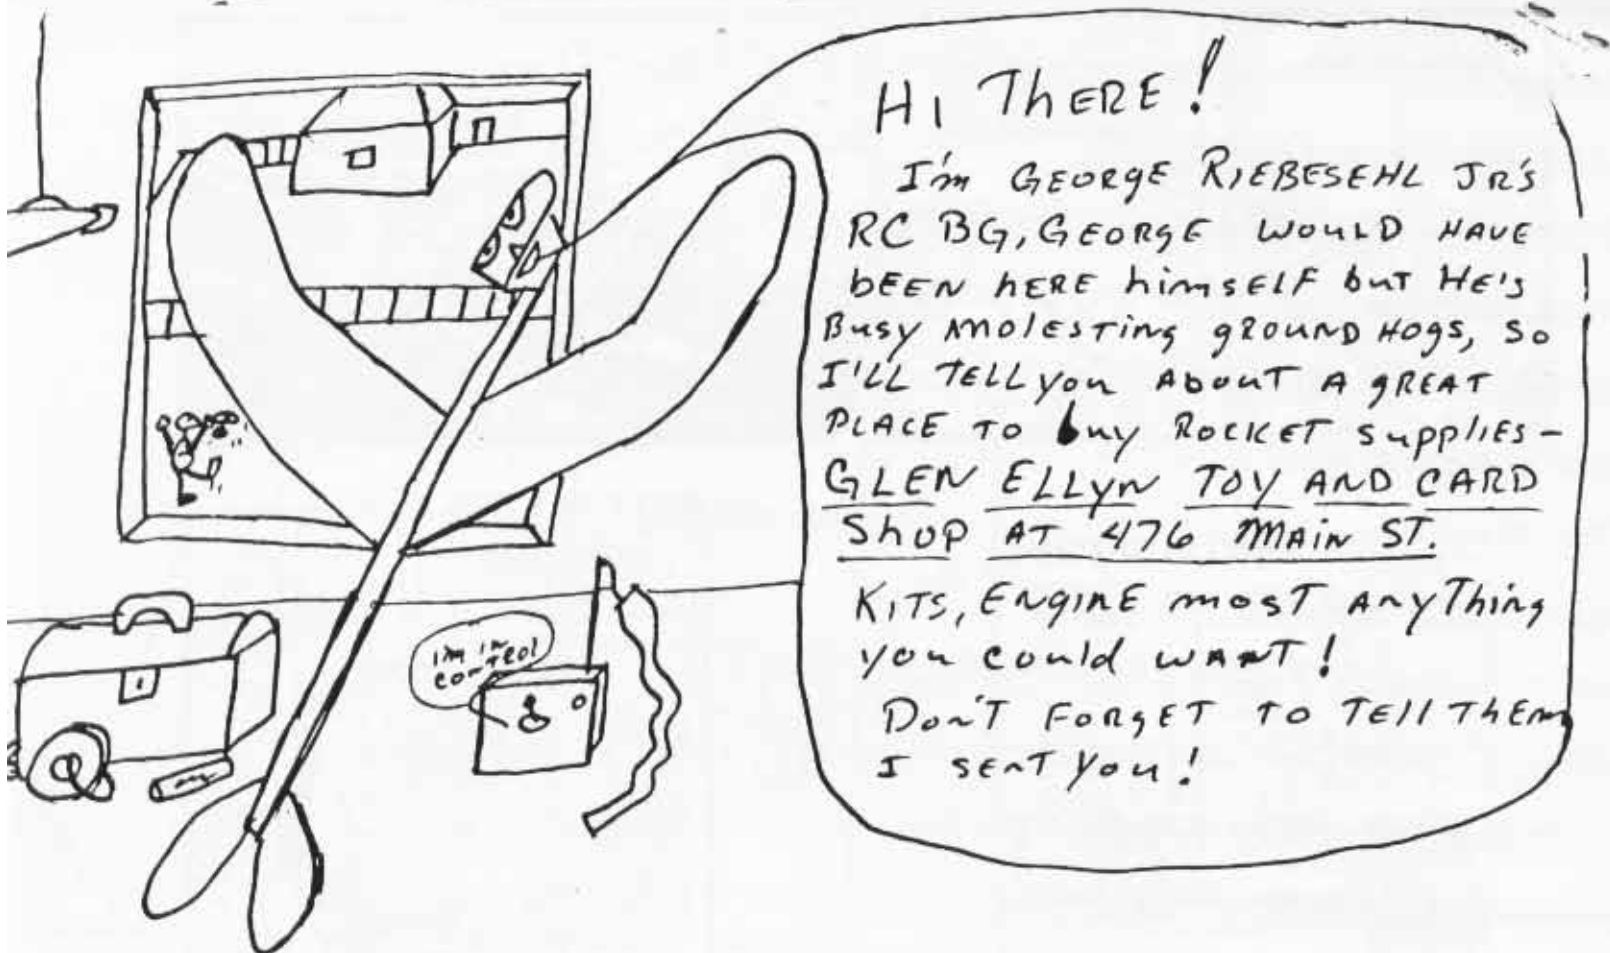 HI ThERE!
I'm GEORGE RIEBESEHL JR'S
RC BG, GEORGE WOULD HAVE
bEEN hERE himSELF but HE'S
Busy molESTing gROUND HOgS, So
I'LL TELL you ABOUT A gREAT
PLACE TO buy ROCKET SuppliES-
GLEN ELLyN TOY AND CARD
ShOP AT 476 MAiN ST.
KITS, ENgiNE moST AnyThing
you could wANT!
Don'T FORgET TO TEll ThEm
I SENT you!
i'm in
control